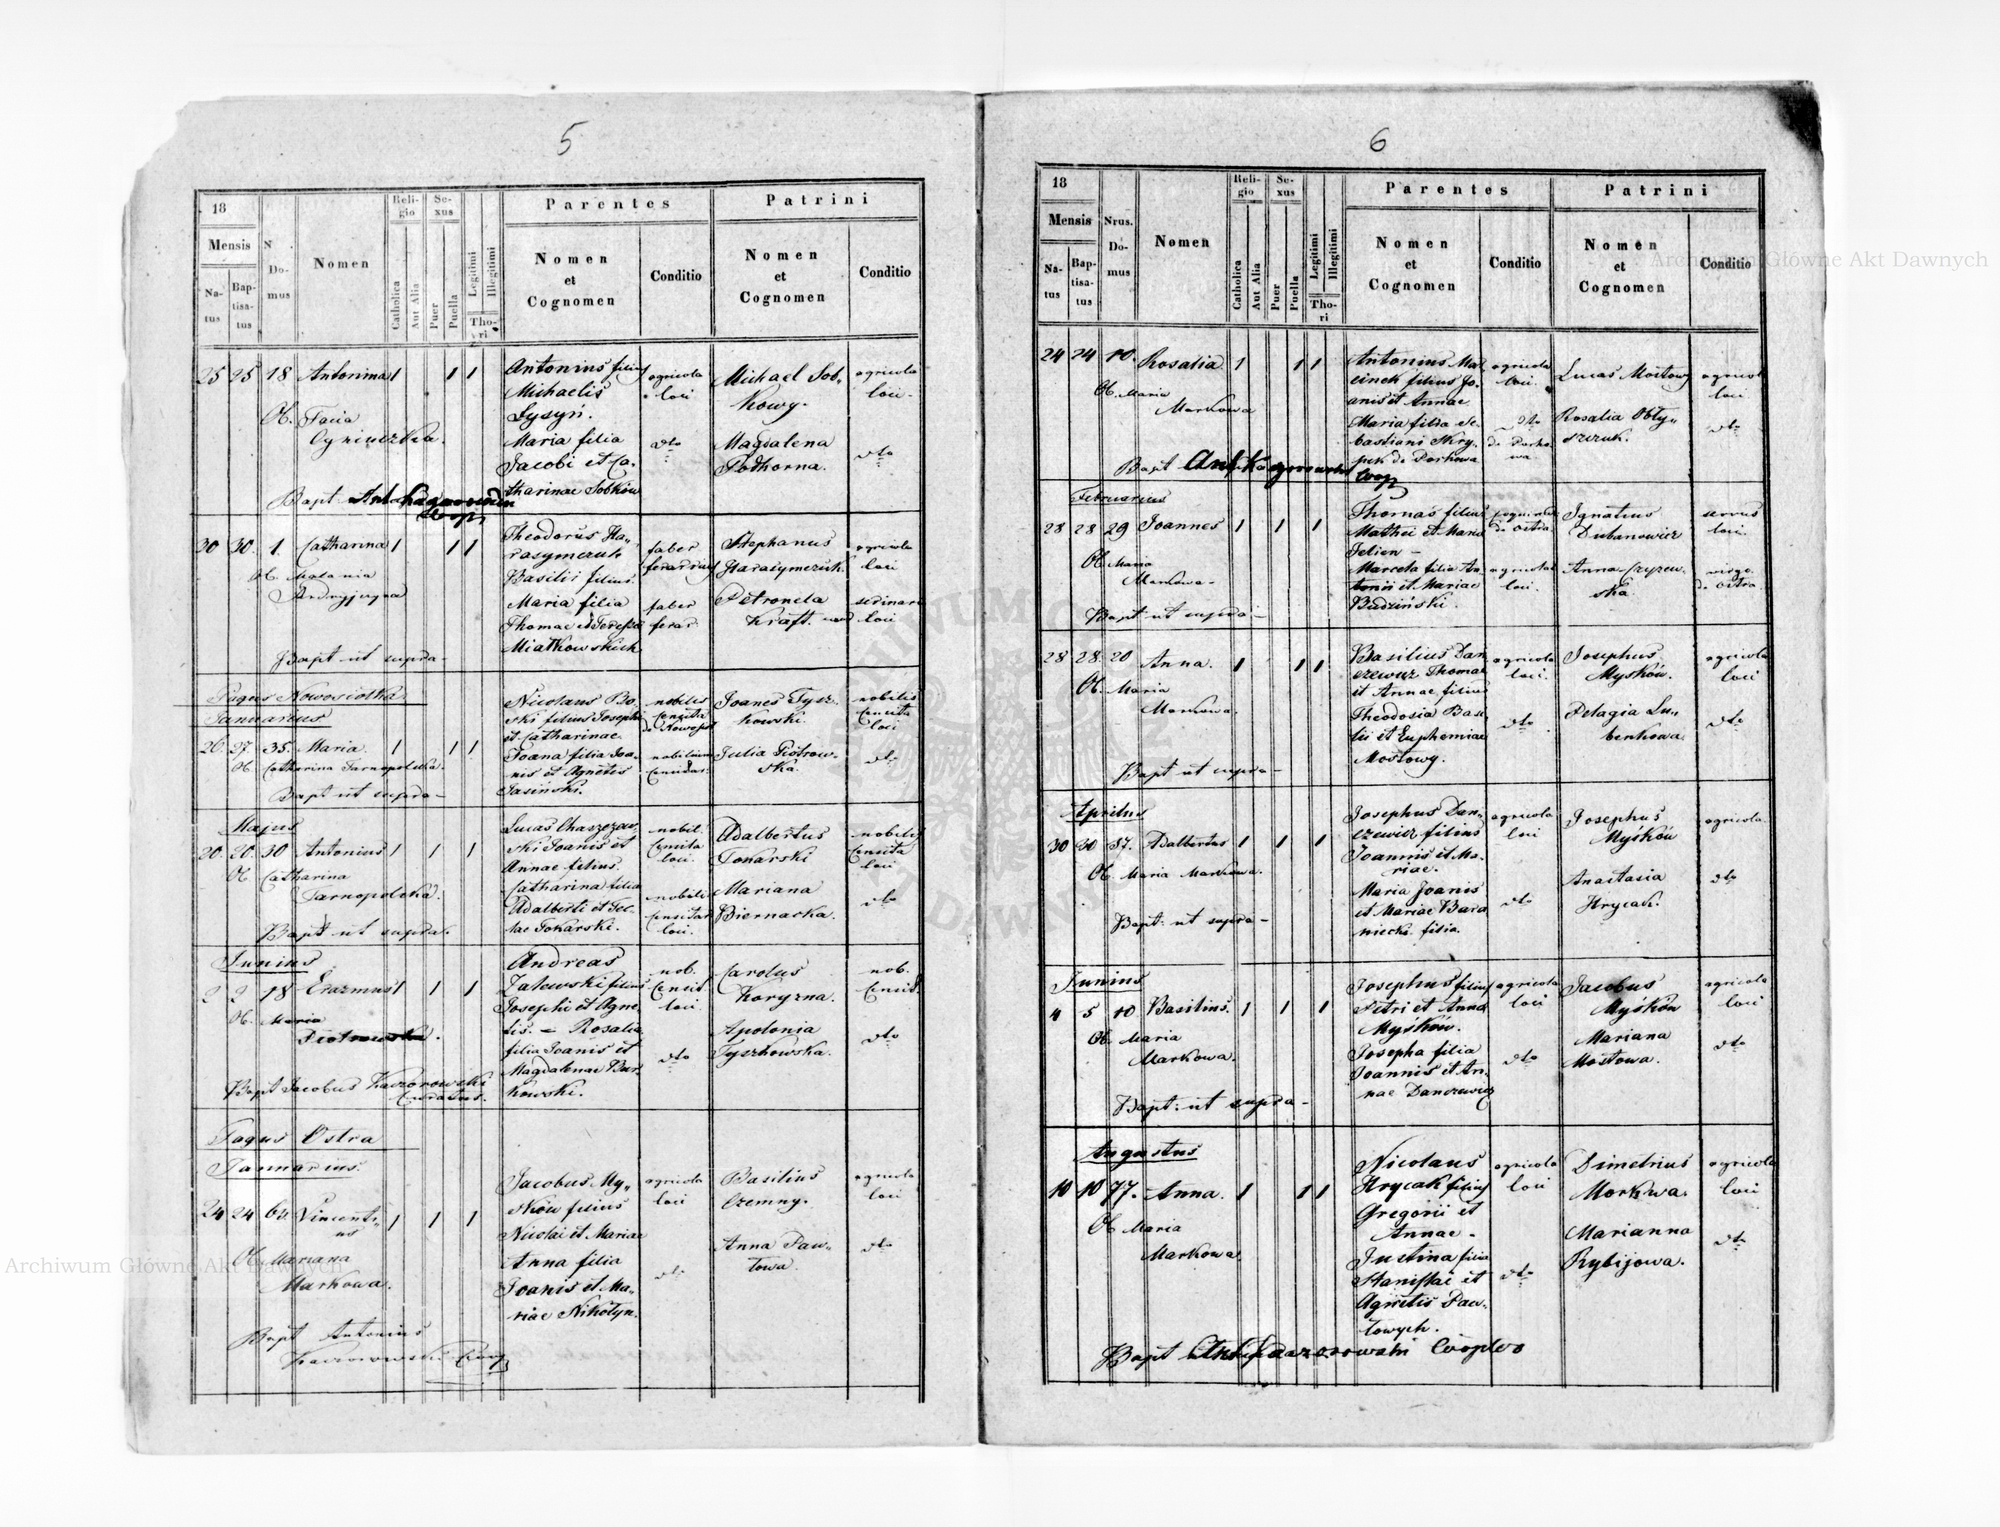 5
18
Mensis
Natus
Baptisatus
N
Domus
Nomen
Religio
Catholica
Aut Alia
Sexus
Puer
Puella
Legitimi
Illegitimi
Thori
Parentes
Nomen
et
Cognomen
Conditio
Patrini
Nomen
et
Cognomen
Conditio
25 25 18 Antonina 1 1 1
Ob.
Bapt.
Antonius filius
Michaelis
Maria filia
Jacobi et Ca-
tharinae Sobków
agricola
loci
dto
Michael Sob-
kowy.
Magdalena
Podhorna.
agricola
loci
dto
30 30. 1. Catharina 1 1 1
Ob. Malania
Bapt ut supra
Theodorus Ha-
rasymczuk
Basilii filius.
Maria filia
Thomae et Teresiae
Miatkowskich
faber
ferarius
faber
ferar.
Stephanus
Harasymczuk
Petronela
Kraft.
agricola
loci
loci
Pagus Nowosiołka
Januarius
26. 27. 35. Maria 1 1 1
Ob. Catharina Tarnopolska.
Bapt ut supra
Nicolaus Bo-
ski filius Josephi
et Catharinae.
Joana filia Joa-
nis et Agnetis
Jasinski.
nobilis
Censita
Joanes Tysz-
kowski.
Julia Piotrow-
ska.
nobilis
Censita
loci
dto
Majus
20. 20. 30 Antonius 1 1 1
Ob. Catharina
Tarnopolska.
Bapt ut supra.
Lucas
ski Joanis et
Annae filius.
Catharina filia
Adalberti et Tec-
lae Tokarski.
nobil.
Censita
loci.
nobilis
loci.
Adalbertus
Tokarski
Mariana
Biernacka.
nobilis
Censita
loci
dto
Junius
2 2 18 Erazmus 1 1 1
Ob. Maria
Piotrowska.
Bapt Jacobus Kaczorowski
Curatus.
Andreas
Zalewski filius
Josephi et Agne-
tis. – Rosalia
filia Joanis et
Magdalenae Bur-
kowski.
nob.
Censit.
loci.
dto
Carolus
Koryzna.
Apolonia
Tyszkowska.
nob.
Censit.
dto
Pagus Ostra
Januarius.
24 24 Vincenti-
us 1 1 1
Ob. Mariana
Markowa.
Bapt Antonius
Kaczorowski Coop
Jacobus My-
śków filius
Nicolai et Mariae
Anna filia
Joanis et Ma-
riae Nikołyn.
agricola
loci
dto
Basilius
Czemny.
Anna Paw-
łowa.
agricola
loci
dto
6
18
Mensis
Natus
Baptisatus
Nrus.
Domus
Nomen
Religio
Catholica
Aut Alia
Sexus
Puer
Puella
Legitimi
Illegitimi
Thori
Parentes
Nomen
et
Cognomen
Conditio
Patrini
Nomen
et
Cognomen
Conditio
24 24 10. Rosalia 1 1 1
Ob. Maria
Markowa
Bapt Ant. Kaczorowski
Coop
Antonius Mar-
cinek filius Jo-
anis et Annae
Maria filia Se-
bastiani Skry-
pek de Porhowa
agricola
loci.
dto
de Porho-
wa
Lucas Mostowy
Rosalia
agricola
loci
dto
Februarius
28 28 29 Joannes 1 1 1
Ob. Maria
Markowa
Bapt ut supra
Thomas filius
Mathei et Maria
Marcela filia An-
tonii et Mariae
Budziński.
de Ostra
agricola
loci.
Ignatius
Dubanowicz
Anna Szyzew-
ska
servus
loci.
virgo
de Ostra
28 28. 20 Anna. 1 1 1
Ob. Maria
Markowa.
Bapt ut supra
Basilius Dan-
czewicz Thomae
et Annae filius
Theodosia Basi-
lii et Euphemiae
Mostowy.
agricola
loci.
dto
Josephus
Myśków.
Pelagia Lu-
benkowa.
agricola
loci
dto
Aprilus
30 30 87. Adalbertus 1 1 1
Ob. Maria Markowa.
Bapt. ut supra
Josephus Dan-
czewicz filius
Joannis et Ma-
riae.
Maria Joanis
et Mariae Bara-
niecki filia.
agricola
loci
dto
Josephus
Myśków
Anastasia
Hrycak.
agricola
dto
Junius
4 5 10 Basilius. 1 1 1
Ob. Maria
Markowa.
Bapt: ut supra
Josephus filius
Petri et Anna
Myśków.
Josepha filia
Joannis et An-
nae Danczewicz
agricola
loci
dto
Jacobus
Myśków
Mariana
Mostowa.
agricola
loci
dto
Augustus
10 10 77. Anna. 1 1 1
Ob. Maria
Markowa
Bapt Ant. Kaczorowski Cooptor
Nicolaus
Hrycak filius
Gregorii et
Annae
Justina filia
Stanislai et
Agnetis Paw-
łowych.
agricola
loci
dto
Dimetrius
Morkwa.
Marianna
Rybijowa.
agricola
loci
dto
Archiwum Główne Akt Dawnych
Archiwum Główne Akt Dawnych